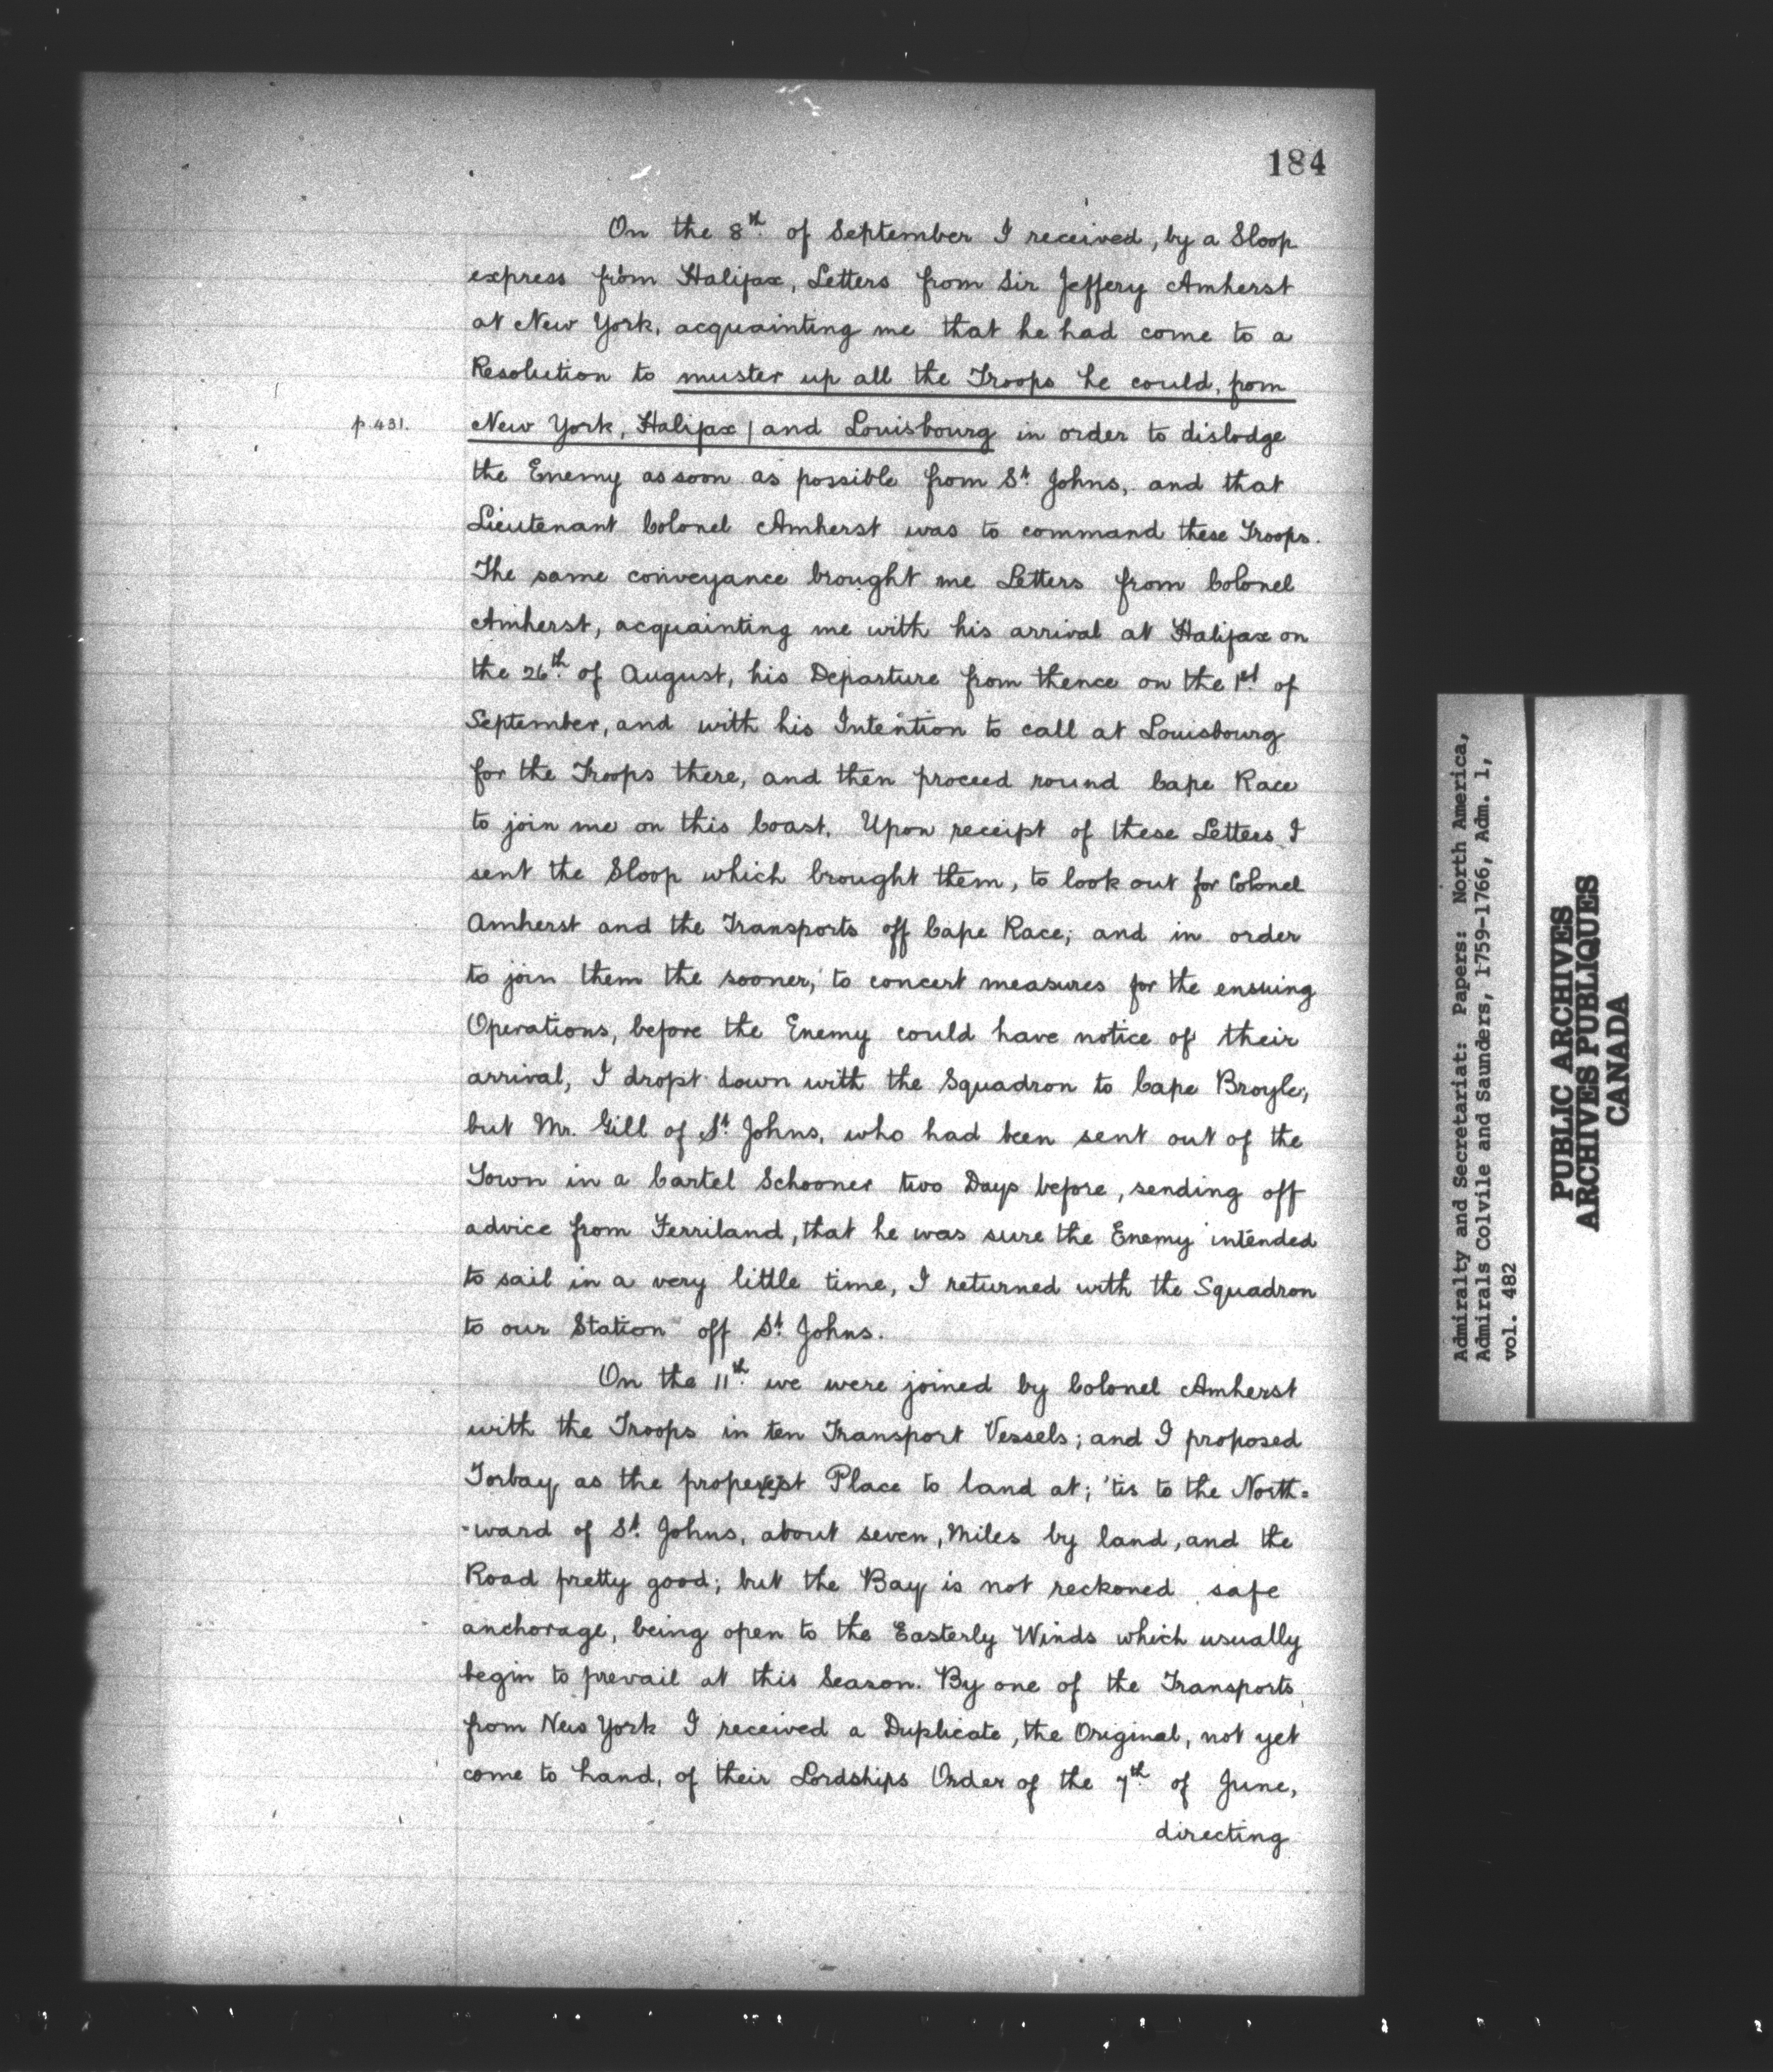 184
On the 8th. of September I received, by a Sloop
express from Halifax, Letters from Sir Jeffery Amherst
at New York, acquainting me that he had come to a
Resolution to muster up all the Troops he could, from
p. 431.
New York, Halifax | and Louisbourg in order to dislodge
the Enemy as soon as possible from St. Johns, and that
Lieutenant Colonel Amherst was to command these Troops.
The same conveyance brought me Letters from Colonel
Amherst, acquainting me with his arrival at Halifax on
the 26th. of August, his Departure from thence on the 1st. of
September, and with his Intention to call at Louisbourg
for the Troops there, and then proceed round Cape Race
to join me on this Coast. Upon receipt of these Letters I
sent the Sloop which brought them, to look out for Colonel
Amherst and the Transports off Cape Race; and in order
to join them the sooner, to concert measures for the ensuing
Operations, before the Enemy could have notice of their
arrival, I dropt down with the Squadron to Cape Broyle;
but Mr. Gill of St. Johns, who had been sent out of the
Town in a Cartel Schooner two Days before, sending off
advice from Ferriland, that he was sure the Enemy intended
to sail in a very little time, I returned with the Squadron
to our Station off St. Johns.
On the 11th. we were joined by Colonel Amherst
with the Troops in ten Transport Vessels; and I proposed
Torbay, as the properest Place to land at; 'tis to the North-
-ward of St. Johns, about seven, Miles by land, and the
Road pretty good; but the Bay is not reckoned safe
anchorage, being open to the Easterly Winds which usually
begin to prevail at this Season. By one of the Transports
from New York I received a Duplicate, the Original, not yet
come to hand, of their Lordships Order of the 7th. of June,
directing
Admiralty and Secretariat: Papers: North America,
Admirals Colvile and Saunders, 1759-1766, Adm. 1,
vol. 482
PUBLIC ARCHIVES
ARCHIVES PUBLIQUES
CANADA